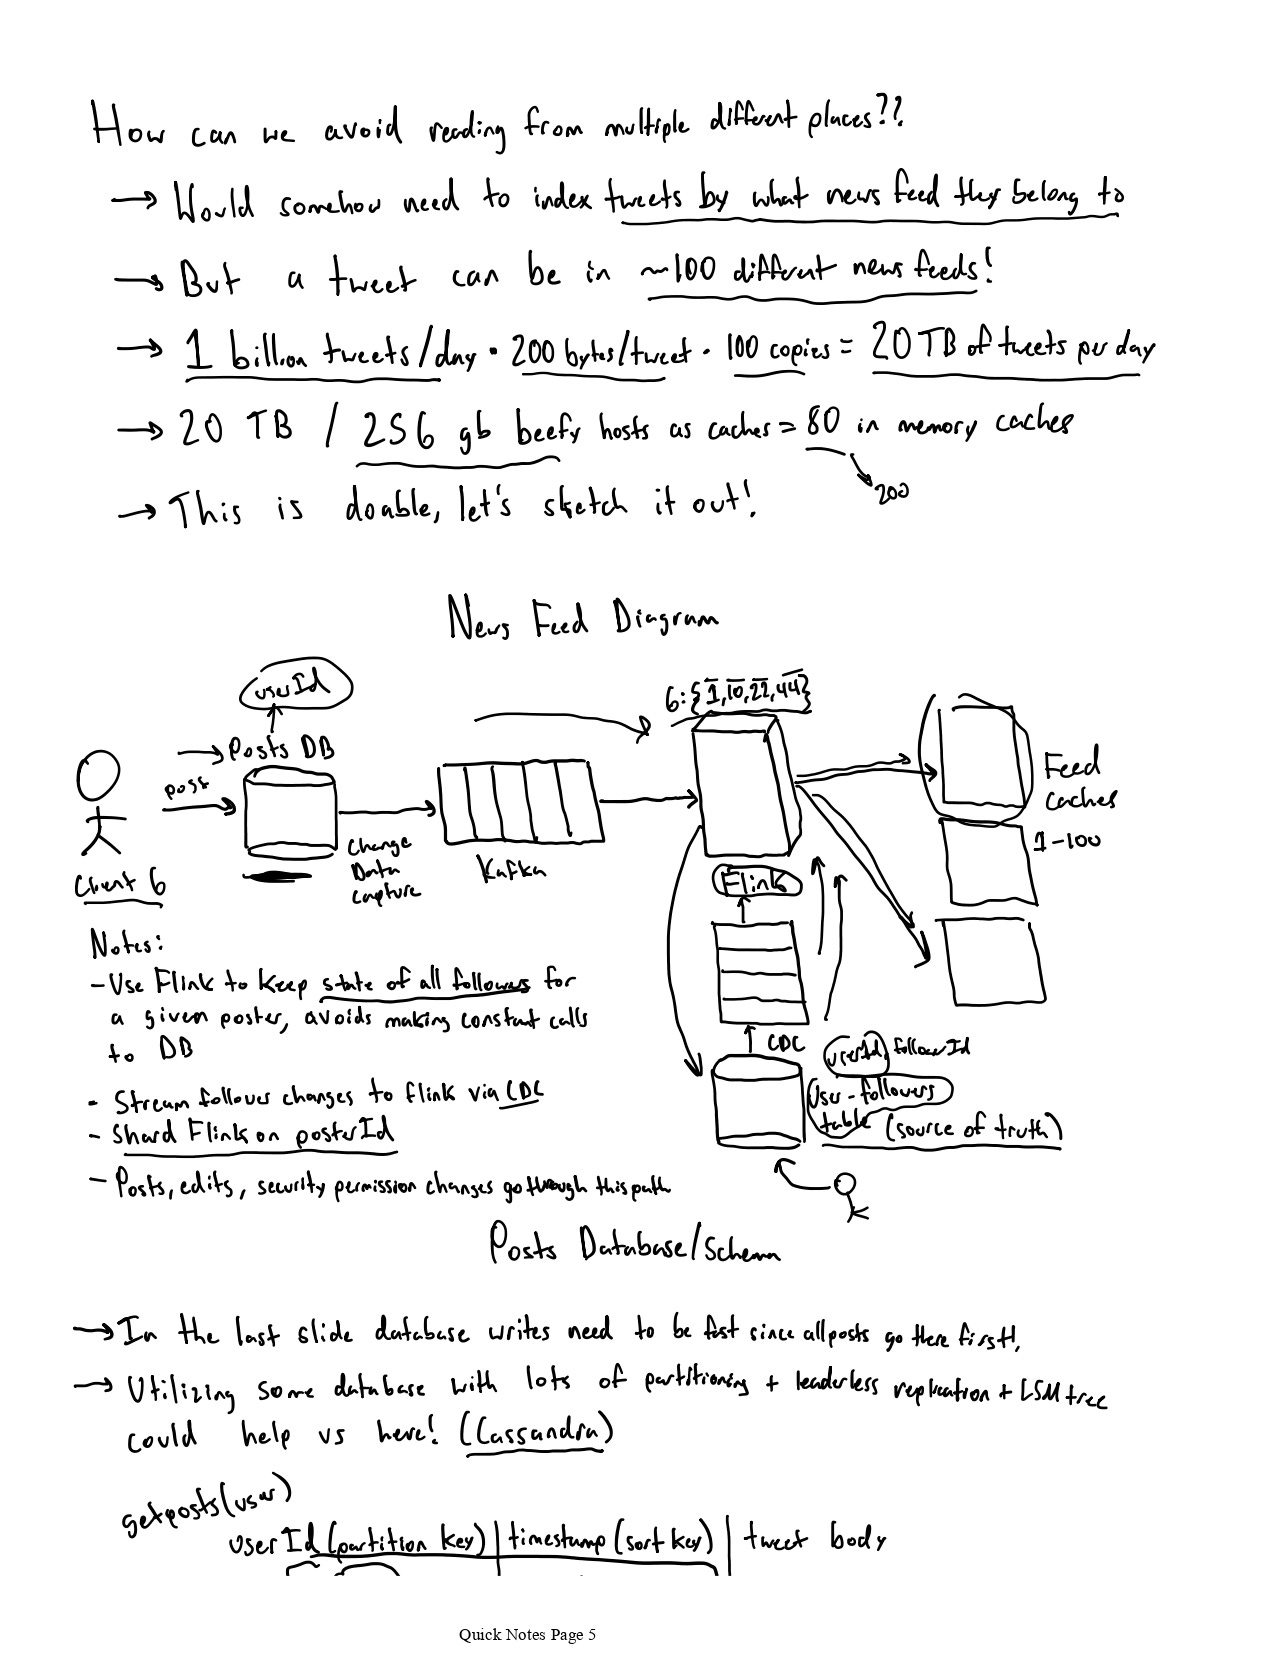 How can we avoid reading from multiple different places??
→ Would somehow need to index tweets by what news feed they belong to
→ But a tweet can be in ~100 different news feeds!
→ 1 billion tweets/day · 200 bytes/tweet · 100 copies = 20 TB of tweets per day
→ 20 TB / 256 gb beefy hosts as caches = 80 in memory caches
200
→ This is doable, let's sketch it out!
News Feed Diagram
userId
6: {1, 10, 22, 44}
→ Posts DB
post
Feed
caches
1-100
Change
Data
capture
Kafka
Flink
Client 6
Notes:
- Use Flink to keep state of all followers for
a given poster, avoids making constant calls
to DB
CDC
userId, followerId
User-followers
table (source of truth)
- Stream follower changes to flink via CDC
- Shard Flink on posterId
- Posts, edits, security permission changes go through this path
Posts Database/Schema
→ In the last slide database writes need to be fast since all posts go there first!,
→ Utilizing some database with lots of partitioning + leaderless replication + LSM tree
could help us here! (Cassandra)
getposts(user)
userId (partition key) | timestamp (sort key) | tweet body
Quick Notes Page 5